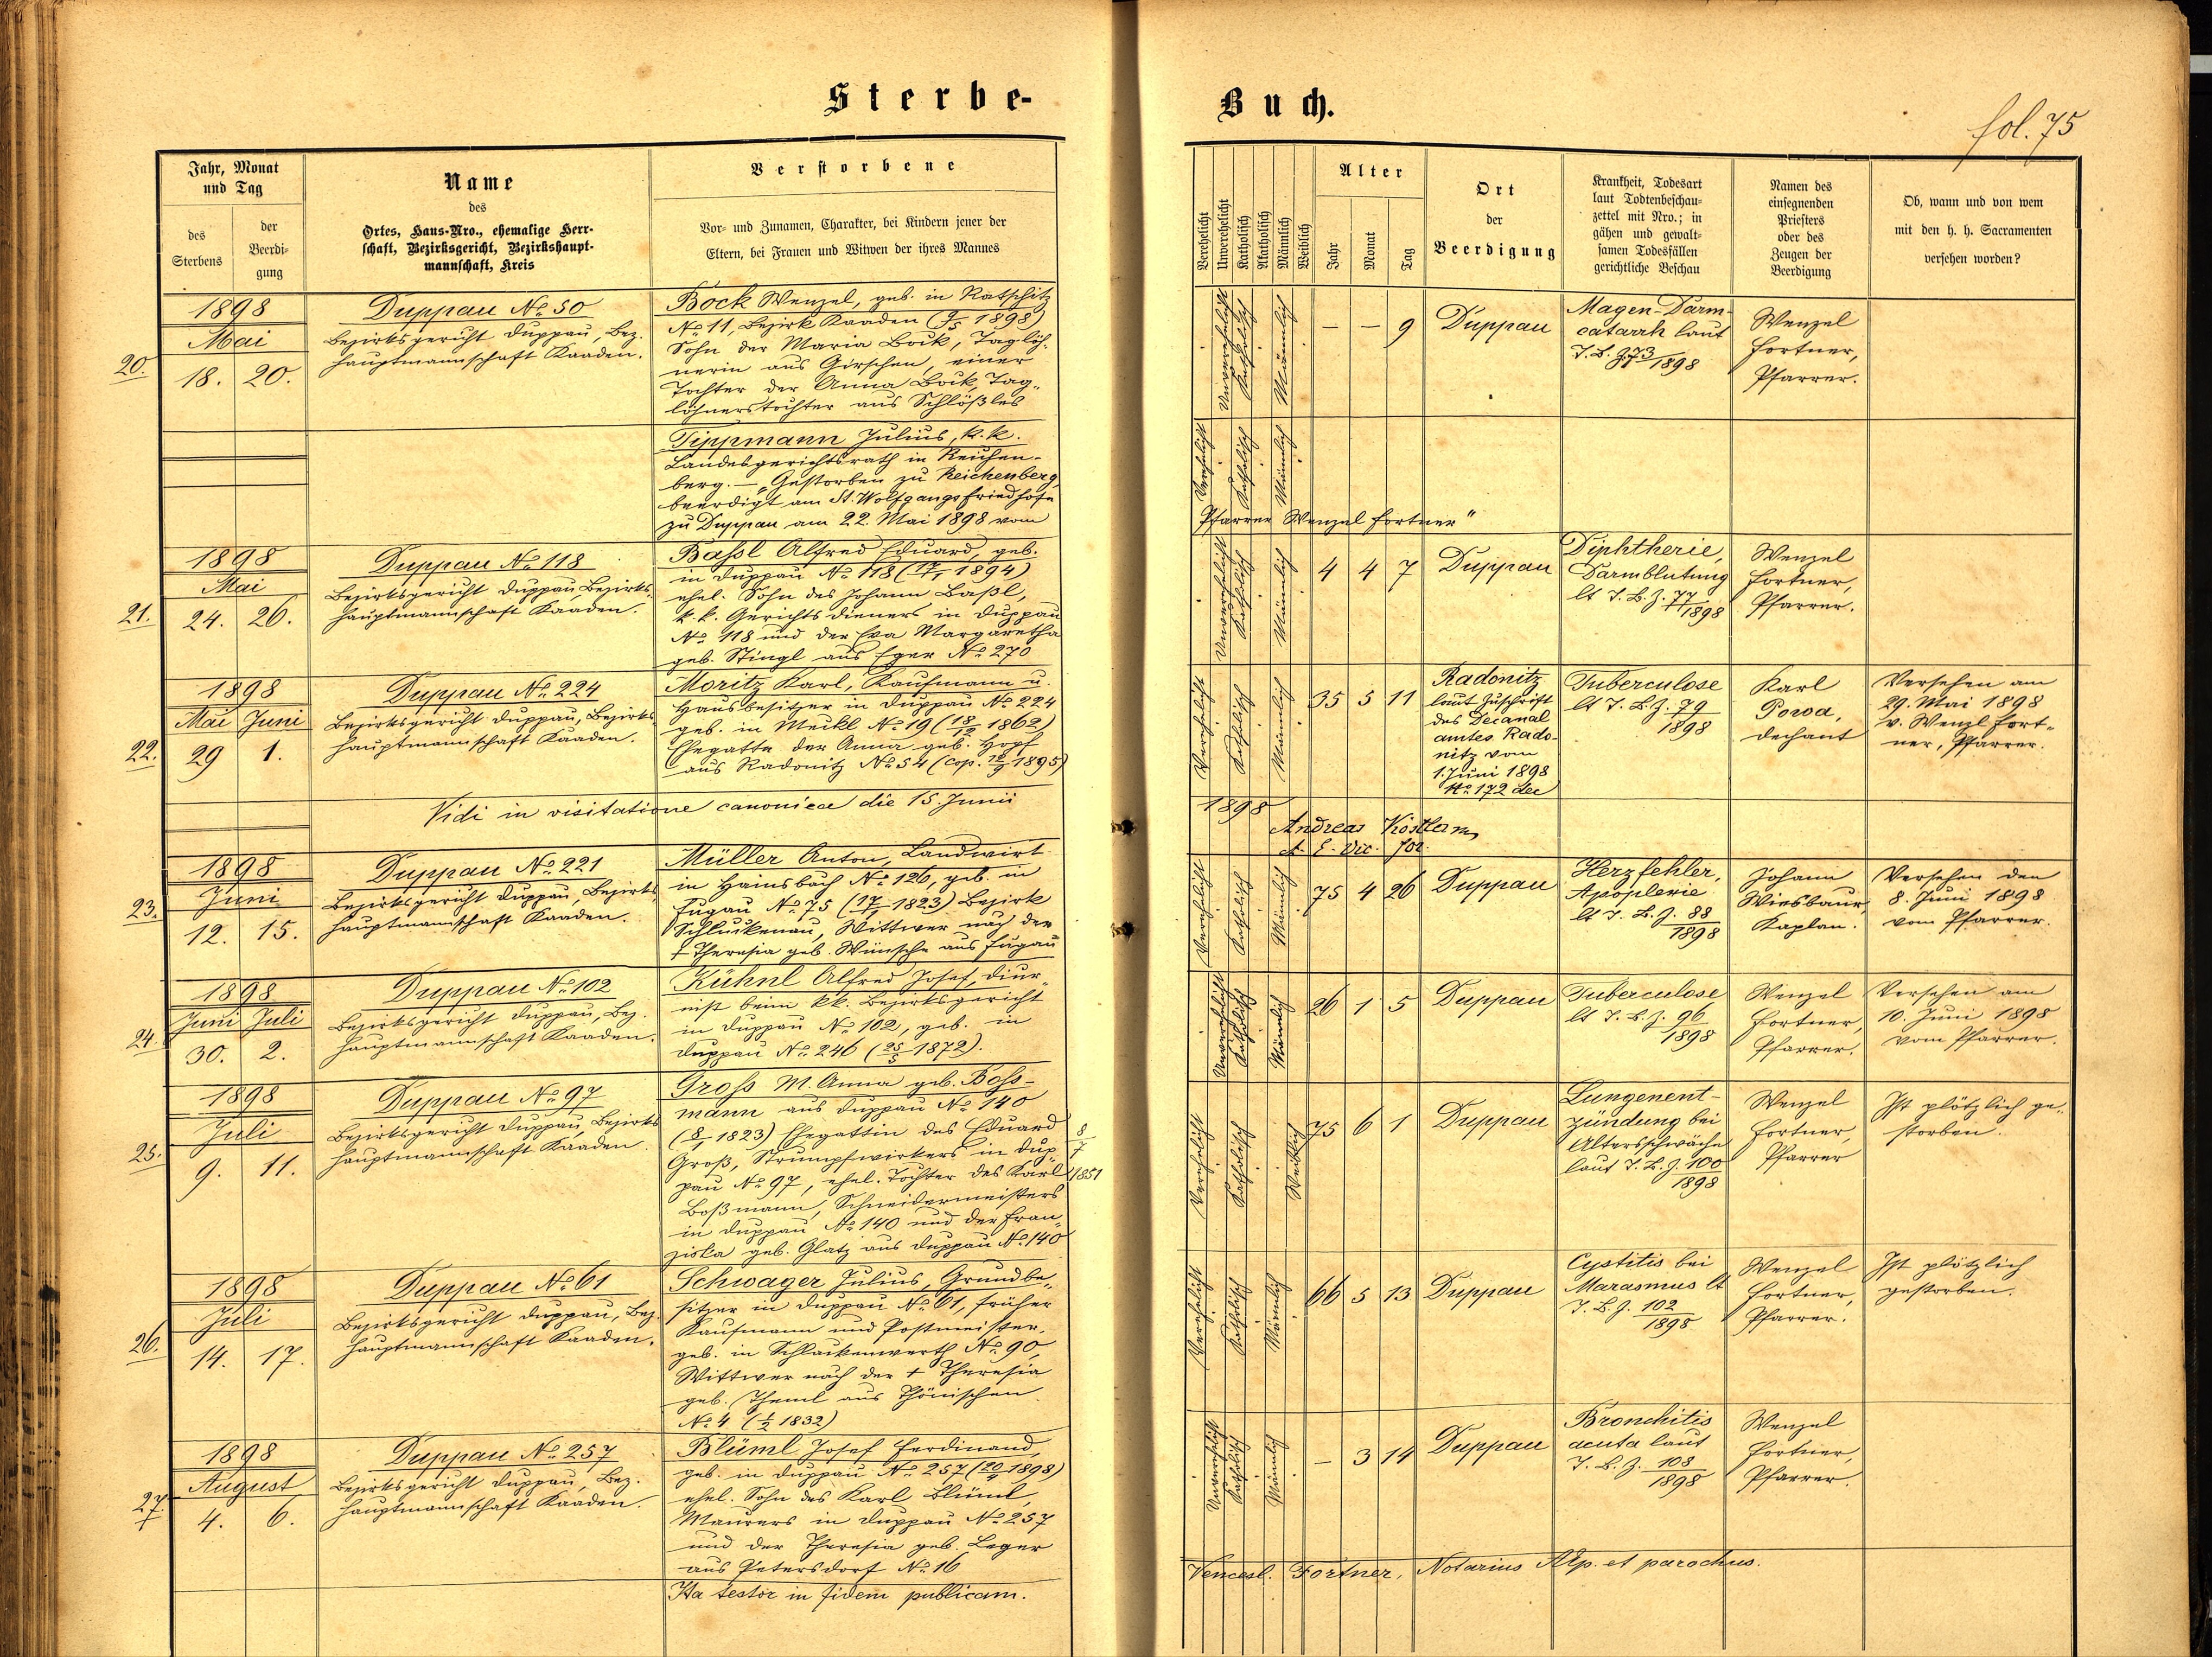 Sterbe-
Buch.
fol. 75
Jahr, Monat
und Tag
des
Sterbens
der
Beerdi-
gung
Name
des
Ortes, Haus-Nro., ehemalige Herr-
schaft, Bezirksgericht, Bezirkshaupt-
mannschaft, Kreis
Verstorbene
Vor- und Zunamen, Charakter, bei Kindern jener der
Eltern, bei Frauen und Witwen der ihres Mannes
Verehelicht
Unverehelicht
Katholisch
Akatholisch
Männlich
Weiblich
Alter
Jahr
Monat
Tag
Ort
der
Beerdigung
Krankheit, Todesart
laut Todtenbeschau-
zettel mit Nro.; in
gähen und gewalt-
samen Todesfällen
gerichtliche Beschau
Namen des
einsegnenden
Priesters
oder des
Zeugen der
Beerdigung
Ob, wann und von wem
mit den h. h. Sacramenten
versehen worden?
20.
1898
Mai
18. 20.
Duppau No 50
Bezirksgericht Duppau, Bez.
hauptmannschaft Kaaden.
Böck Wenzel, geb. in Ratschitz
No 11, Bezirk Kaaden (9/5 1898)
Sohn der Maria Böck, Taglöh-
nerin aus Girschen, einer
Tochter der Anna Böck, Tag-
löhnerstochter aus Schlößles
Unverehelicht
Katholisch
Männlich
– – 9
Duppau
Magen-Darm-
catarrh laut
T. B. Z. 73/1898
Wenzel
Fortner,
Pfarrer.
Tippmann Julius, k. k.
Landesgerichtsrath in Reichen-
berg. – „Gestorben zu Reichenberg,
beerdigt am St. Wolfgangsfriedhofe
zu Duppau am 22. Mai 1898 vom
Verehelicht
Katholisch
Männlich
Pfarrer Wenzel Fortner"
21.
1898
Mai
24. 26.
Duppau No 118
Bezirksgericht Duppau, Bezirks-
hauptmannschaft Kaaden.
Baßl Alfred Eduard, geb.
in Duppau No 118 (17/1 1894)
ehel. Sohn des Johann Baßl,
k. k. Gerichtsdieners in Duppau
No 118 und der Eva Margaretha
geb. Stingl aus Eger No 270
Unverehelicht
Katholisch
Männlich
4 4 7
Duppau
Diphtherie,
Darmblutung
lt T. B. Z. 77/1898
Wenzel
Fortner,
Pfarrer.
22.
1898
Mai Juni
29 1.
Duppau No 224
Bezirksgericht Duppau, Bezirks-
hauptmannschaft Kaaden.
Moritz Karl, Kaufmann u.
Hausbesitzer in Duppau No 224
geb. in Meckl No 19 (18/12 1862)
Ehegatte der Anna geb. Hopf
aus Radonitz No 54 (cop. 12/9 1895)
Verehelicht
Katholisch
Männlich
35 5 11
Radonitz
laut Zuschrift
des Decanal
amtes Rado-
nitz vom
1. Juni 1898
No 172 dec
Tuberculose
lt T. B. Z. 79
1898
Karl
Powa,
Dechant
Versehen am
29. Mai 1898
v. Wenzl Fort-
ner, Pfarrer.
Vidi in visitatione canonica die 15. Junii
1898
Andreas Köstler
23.
1898
Juni
12. 15.
Duppau No 221
Bezirksgericht Duppau, Bezirks-
hauptmannschaft Kaaden.
Müller Anton, Landwirt
in Hainsbach No 126, geb. in
Fugau No 75 (17/1 1823) Bezirk
Schluckenau, Wittwer nach der
† Theresia geb. Wünsche aus Fugau
Verehelicht
Katholisch
Männlich
75 4 26
Duppau
Herzfehler,
Apoplexie
lt T. B. Z. 88
1898
Johann
Wiesbaur,
Kaplan.
Versehen den
8. Juni 1898
vom Pfarrer.
24.
1898
Juni Juli
30. 2.
Duppau No 102
Bezirksgericht Duppau, Bez.
hauptmannschaft Kaaden.
Kühnl Alfred Josef, Diur-
nist beim k. k. Bezirksgericht
in Duppau No 102, geb. in
Duppau No 246 (25/5 1872).
Unverehelicht
Katholisch
Männlich
26 1 5
Duppau
Tuberculose
lt T. B. Z. 96
1898
Wenzel
Fortner,
Pfarrer.
Versehen am
10. Juni 1898
vom Pfarrer.
25.
1898
Juli
9. 11.
Duppau No 97
Bezirksgericht Duppau, Bezirks
hauptmannschaft Kaaden.
Groß M. Anna geb. Boß-
mann aus Duppau No 140
(8/1 1823) Ehegattin des Eduard
Groß, Strumpfwirkers in Dup-
pau No 97, ehel. Tochter des Karl
Boßmann, Schneidermeisters
in Duppau No 140 und der Fran-
ziska geb. Glatz aus Duppau No 140
8/7 1851
Verehelicht
Katholisch
Weiblich
75 6 1
Duppau
Lungenent-
zündung bei
Altersschwäche
laut T. B. Z. 100
1898
Wenzel
Fortner,
Pfarrer
Ist plötzlich ge-
storben.
26.
1898
Juli
14. 17.
Duppau No 61
Bezirksgericht Duppau, Bez.
hauptmannschaft Kaaden.
Schwager Julius, Grundbe-
sitzer in Duppau No 61, früher
Kaufmann und Postmeister,
geb. in Schlackenwerth No 90,
Wittwer nach der † Theresia
geb. Theml aus Thönischen
No 4 (1/2 1832)
Verehelicht
Katholisch
Männlich
66 5 13
Duppau
Cystitis bei
Marasmus lt
T. B. Z. 102
1898
Wenzel
Fortner,
Pfarrer.
Ist plötzlich
gestorben.
27.
1898
August
4. 6.
Duppau No 257
Bezirksgericht Duppau, Bez.
hauptmannschaft Kaaden.
Blüml Josef Ferdinand,
geb. in Duppau No 257 (20/4 1898)
ehel. Sohn des Karl Blüml,
Maurers in Duppau No 257
und der Theresia geb. Leger
aus Petersdorf No 16
Unverehelicht
Katholisch
Männlich
– 3 14
Duppau
Bronchitis
acuta laut
T. B. Z. 108
1898
Wenzel
Fortner,
Pfarrer.
Ita testor in fidem publicam.
Vencesl. Fortner, Notarius Ap. et parochus.